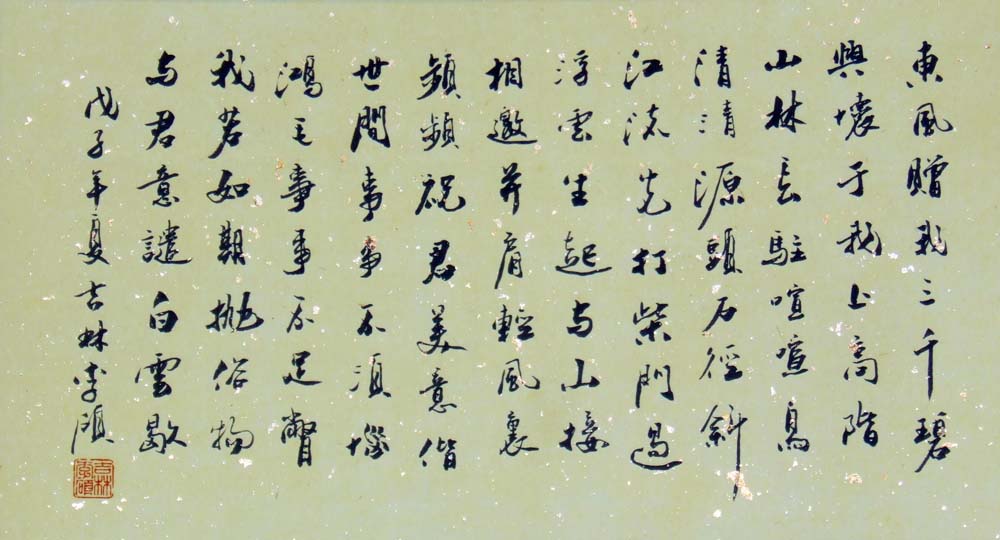 東風贈我三千碧
與壞于我上高階
山林長駐喧喧鳥
清清源頭石徑斜
江流先打柴門過
浮雲生起與山接
相邀并肩輕風裏
頻頻祝君美意偕
世間事事不須惱
鴻毛事事不足瞥
我若如期拋俗物
与君意譴白雲歇
戊子年夏吉林李頌